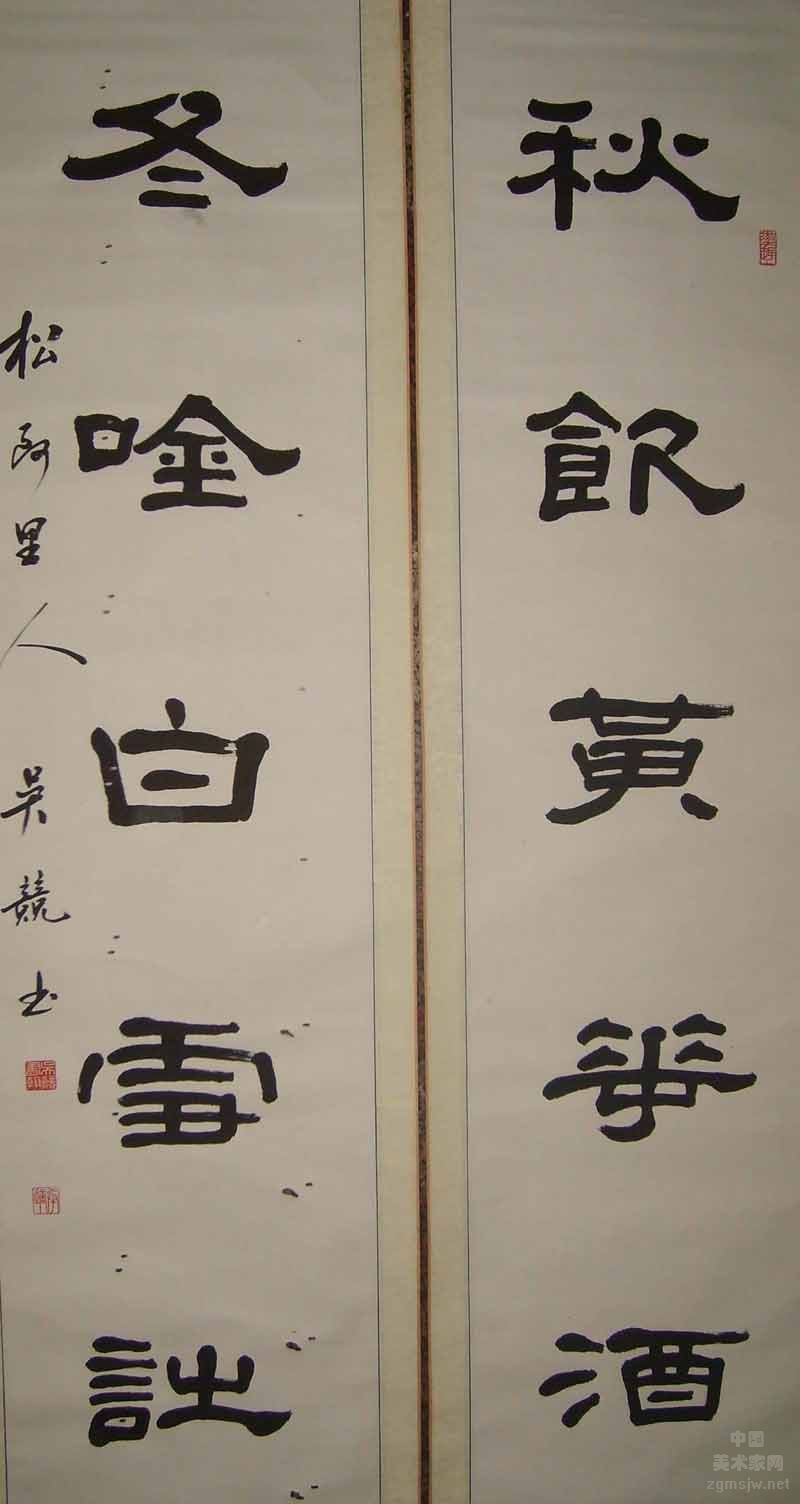 秋飲黃華酒
冬唫白雪詩
松阿里人 吳競书
中国
美术家网
zgmsjw.net